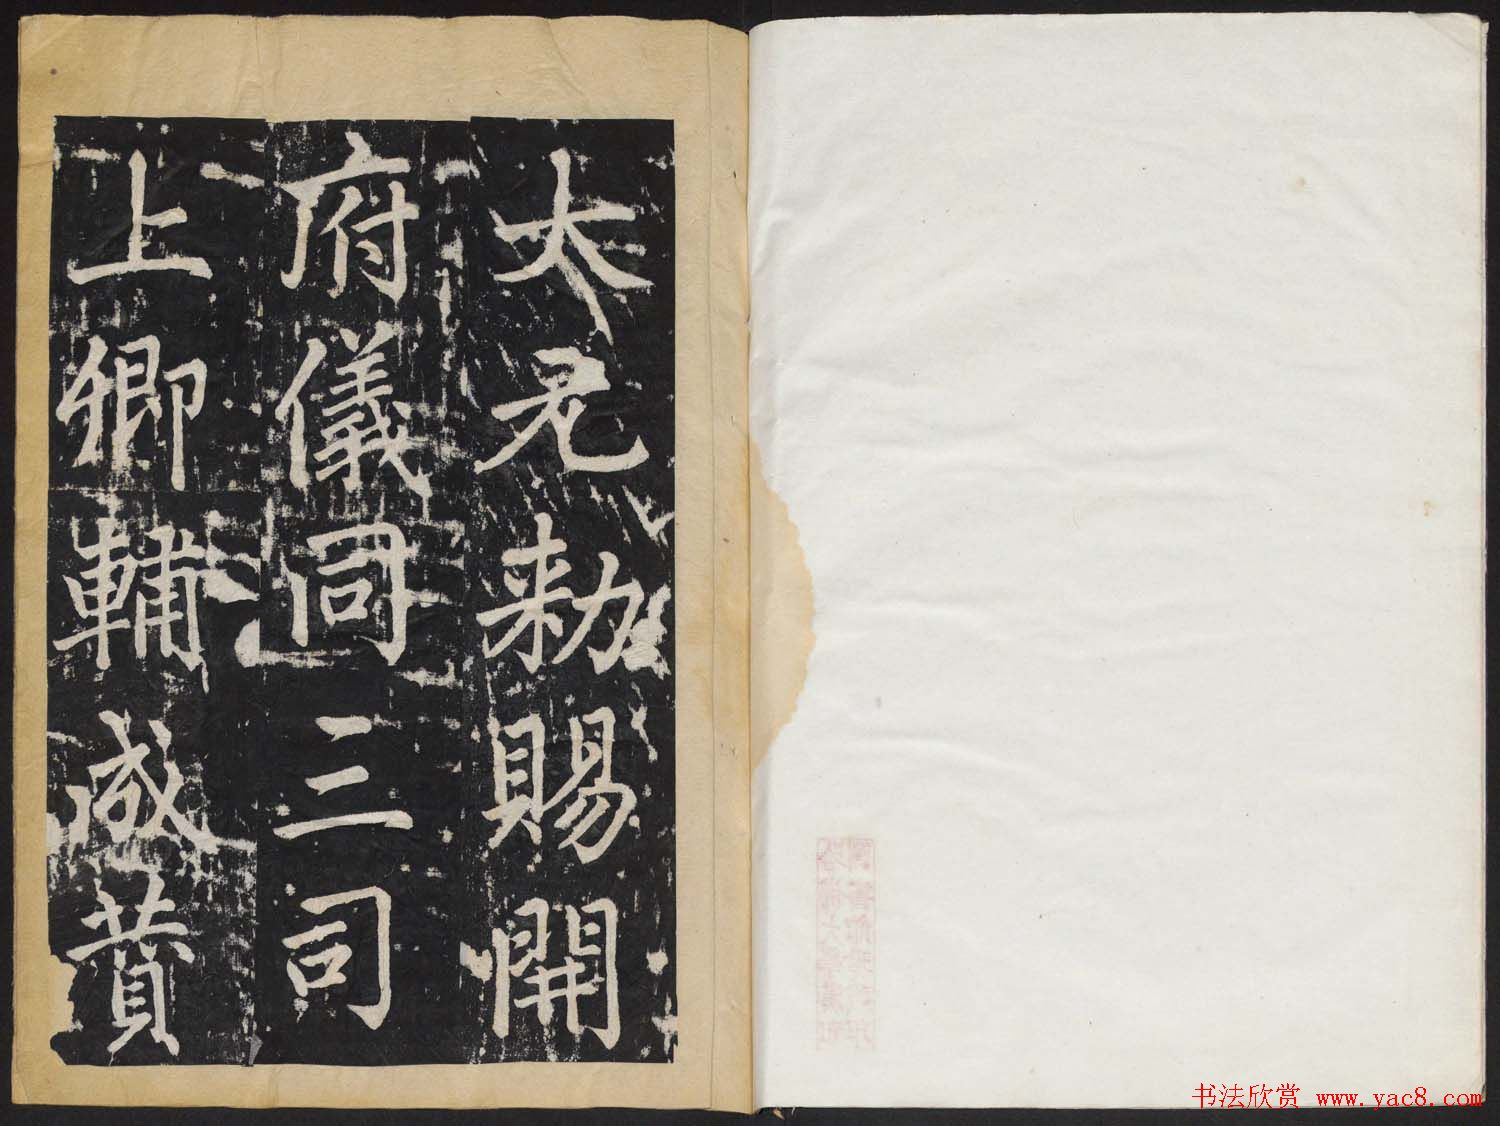 大君勑賜開
府儀同三司
上卿輔咸賛
书法欣赏 www.yac8.com